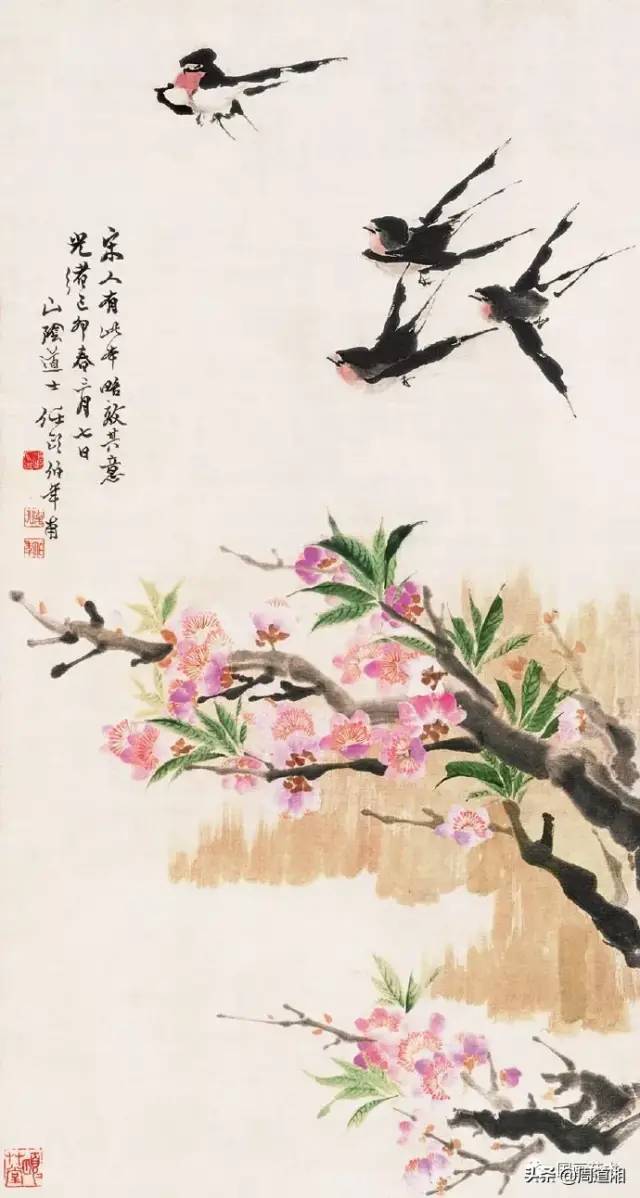 宋人有此本略效其意
光緒己卯春三月七日
山陰道士任頤伯年甫
头条 @周道湘